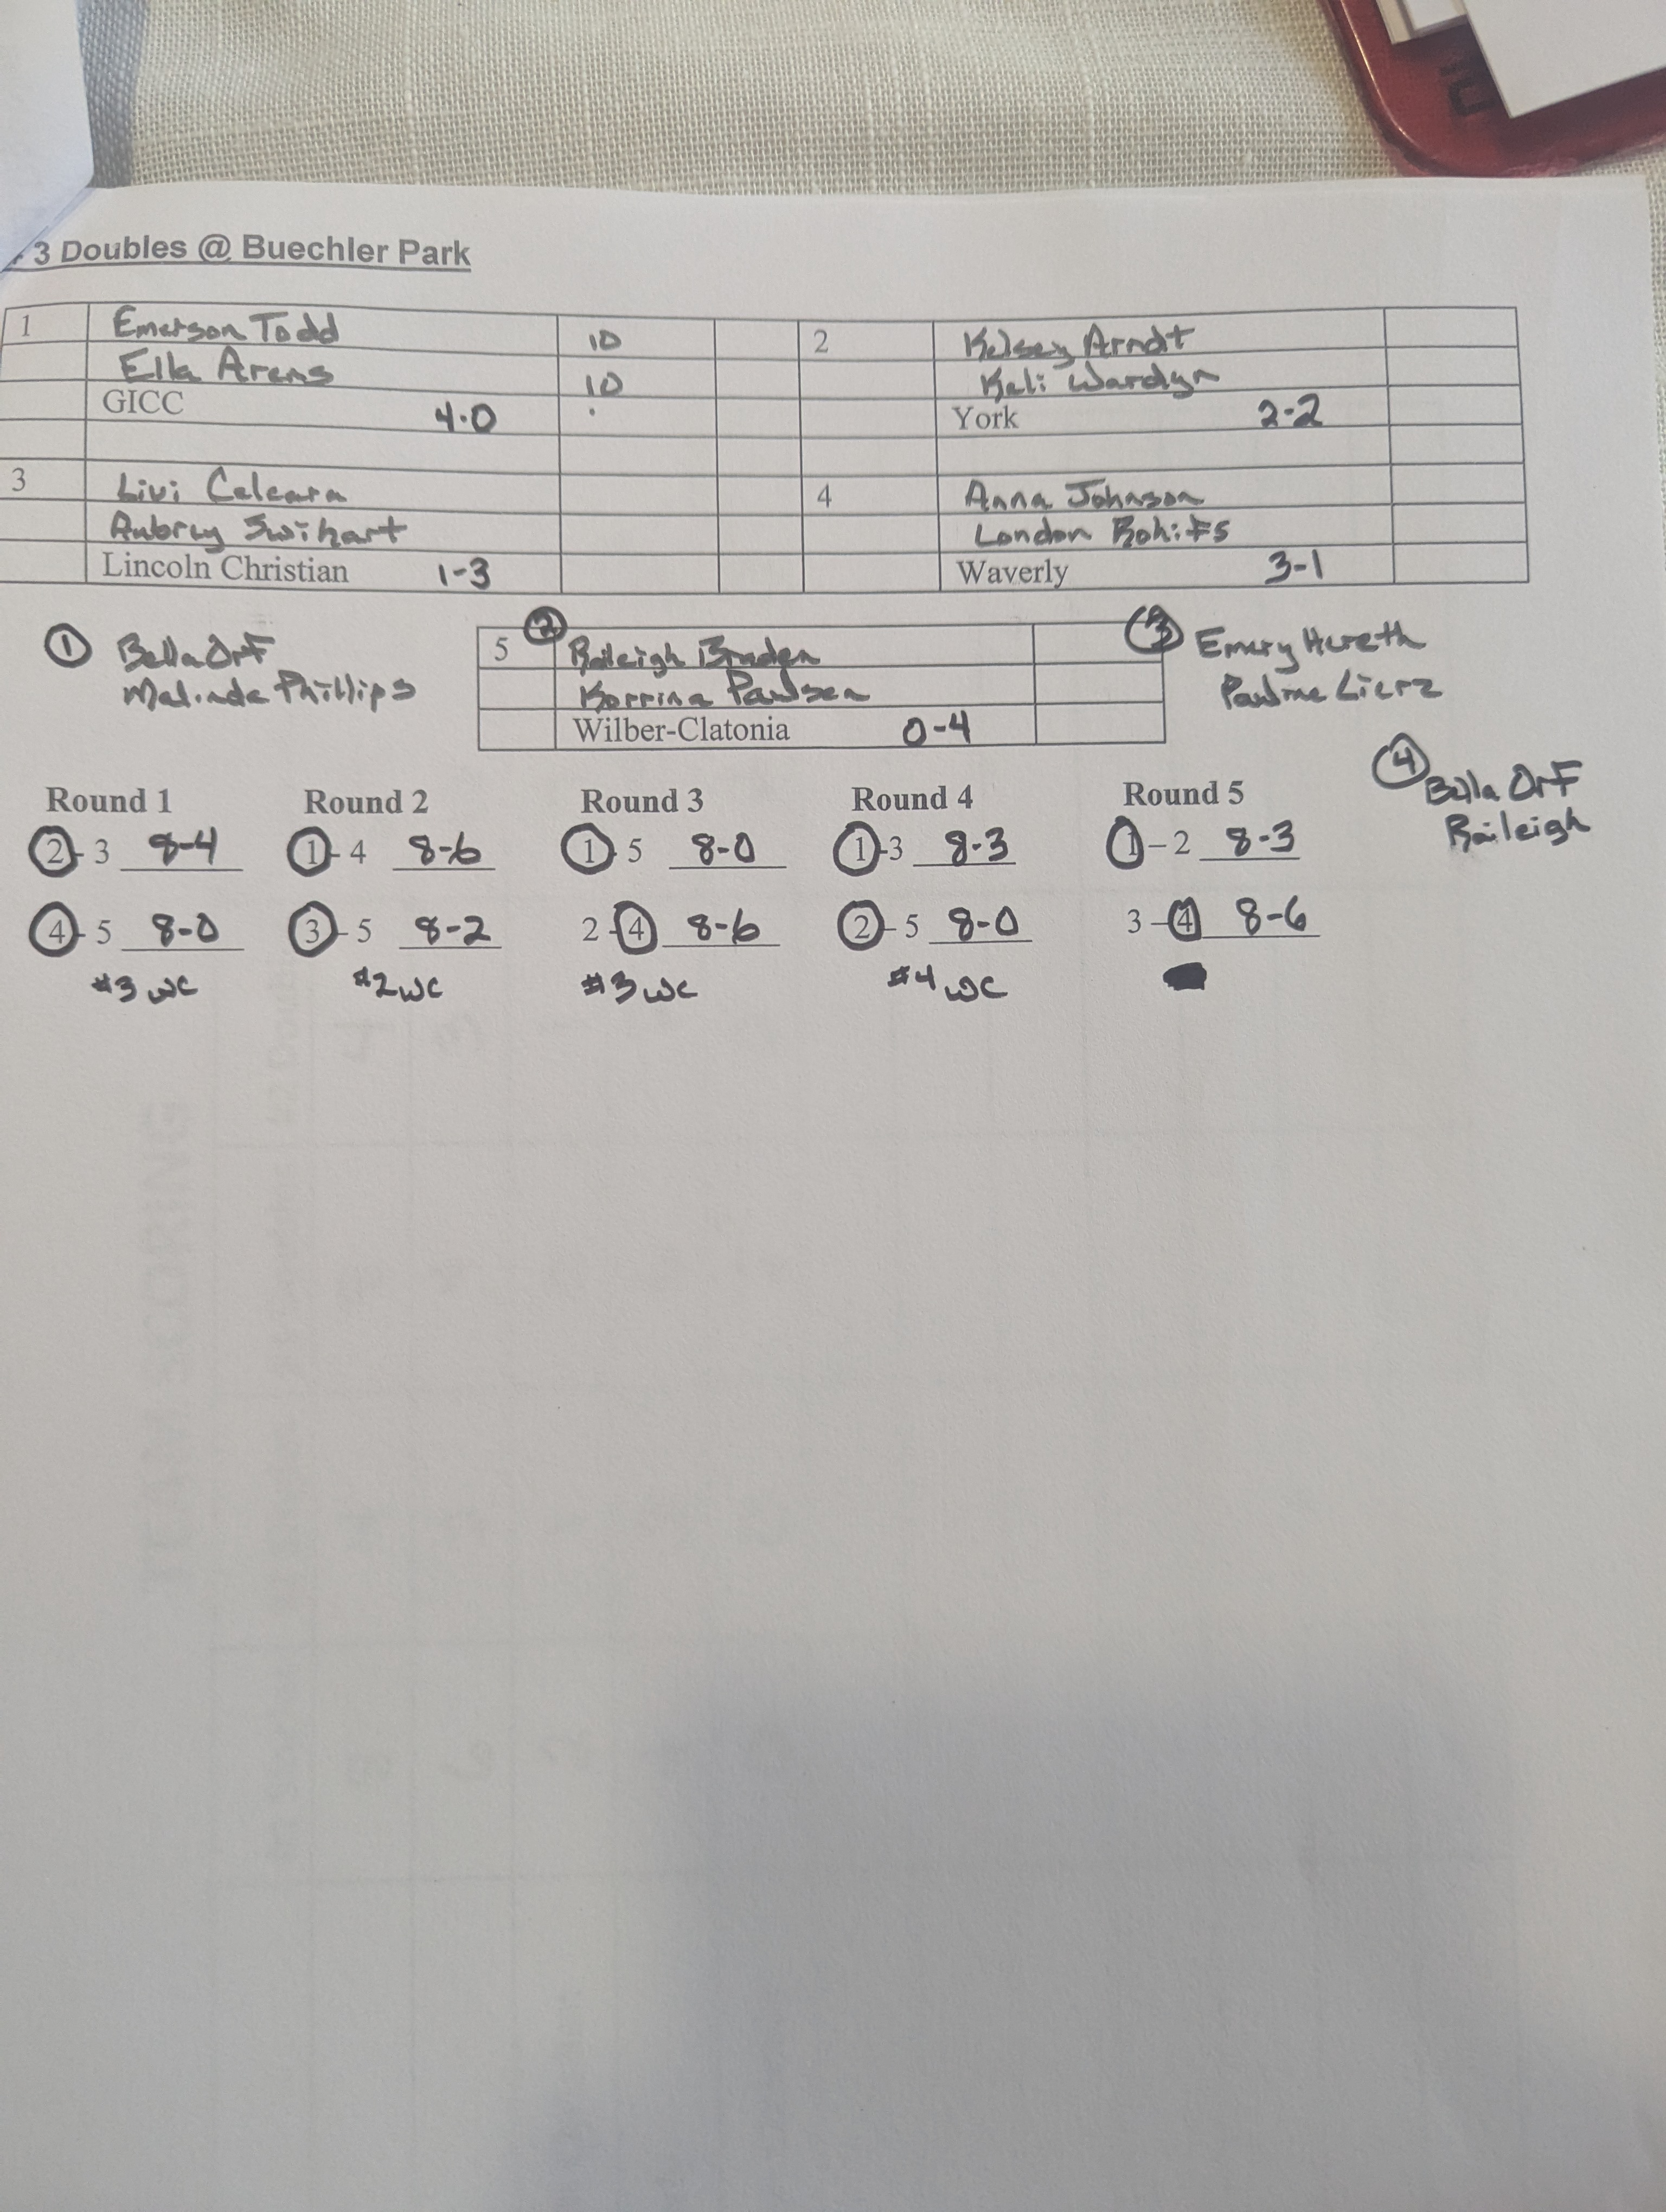 3 Doubles @ Buechler Park
1 Emerson Todd 10 2 Kelsey Arndt
Ella Arens 10 Kali Wardyn
GICC 4-0 York 2-2
3 Livi Celcara 4 Anna Johnson
Aubrey Swihart London Rohlfs
Lincoln Christian 1-3 Waverly 3-1
① Bella Orf 5 ② Raileigh Braden ③ Emery Hereth
Malinda Phillips Korrina Paulsen Pauline Lierz
Wilber-Clatonia 0-4
④ Bella Orf
Raileigh
Round 1 Round 2 Round 3 Round 4 Round 5
2-3 8-4 1-4 8-6 1-5 8-0 1-3 8-3 1-2 8-3
4-5 8-0 3-5 8-2 2-4 8-6 2-5 8-0 3-4 8-6
#3 WC #2 WC #3 WC #4 WC